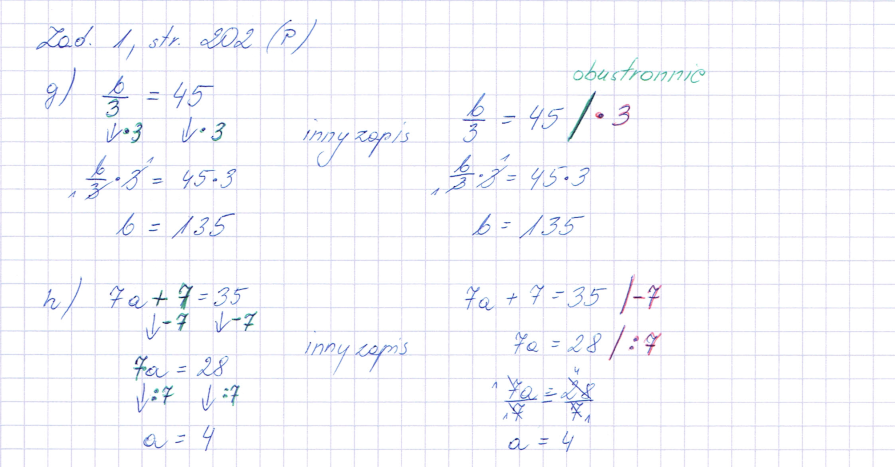 Zad. 1, str. 202 (P)
g) b/3 = 45
↓·3 ↓·3
b/3 · 3 = 45·3
b = 135
inny zapis
obustronnie
b/3 = 45 /·3
b/3 · 3 = 45·3
b = 135
h) 7a + 7 = 35
↓-7 ↓-7
7a = 28
↓:7 ↓:7
a = 4
inny zapis
7a + 7 = 35 /-7
7a = 28 /:7
7a/7 = 28/7
a = 4